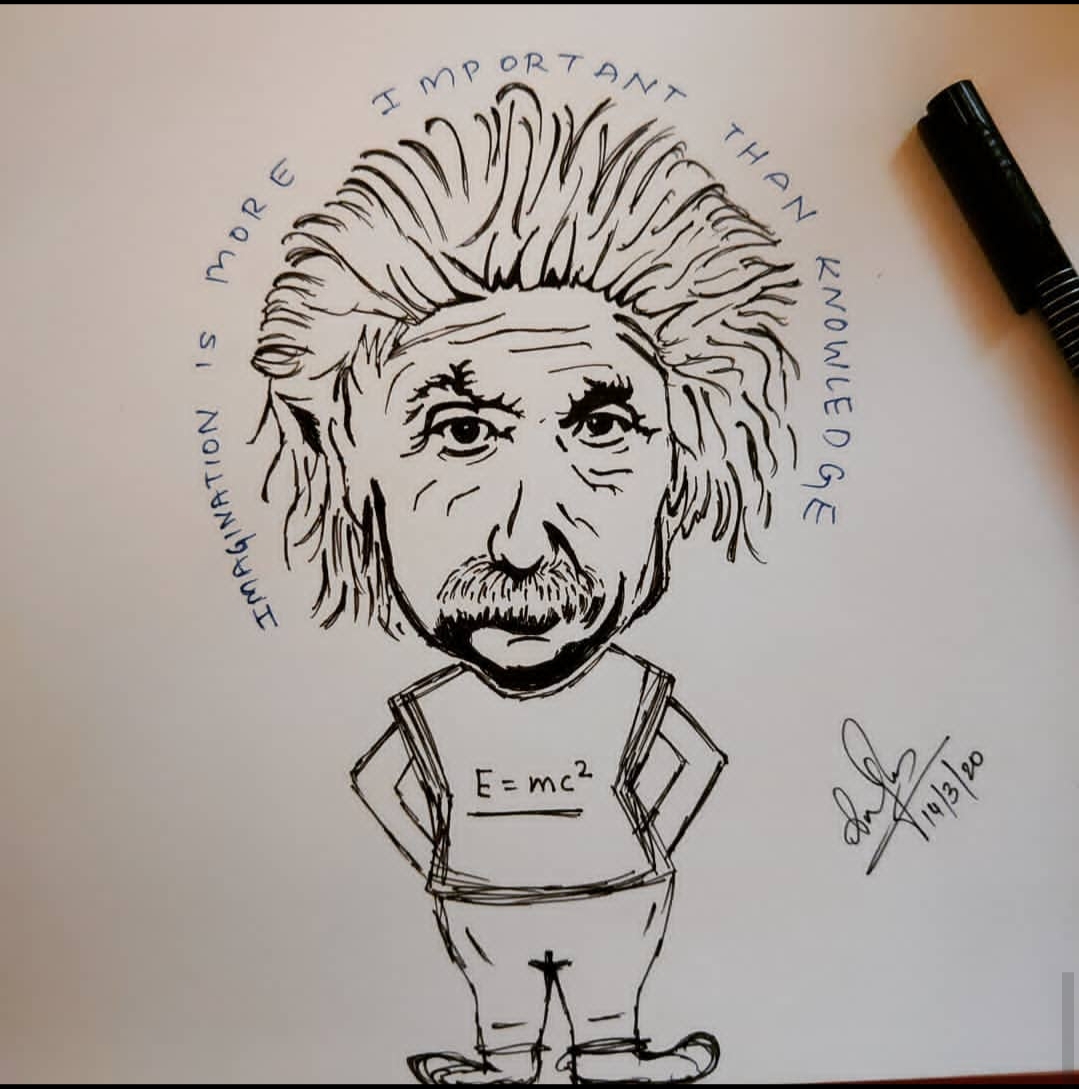 IMAGINATION IS MORE IMPORTANT THAN KNOWLEDGE
E = mc²
14/3/20